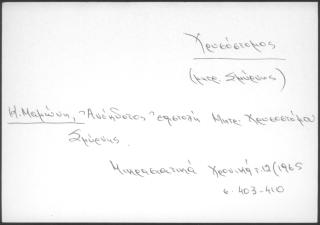 Χρυσόστομος
(μητρ. Σμύρνης)
Η. Μαμώνη, Ἀνέκδοτος ἐπιστολή Μητρ. Χρυσοστόμου
Σμύρνης.
Μικρασιατικά Χρονικά τ. 12 (1965
σ. 403-410